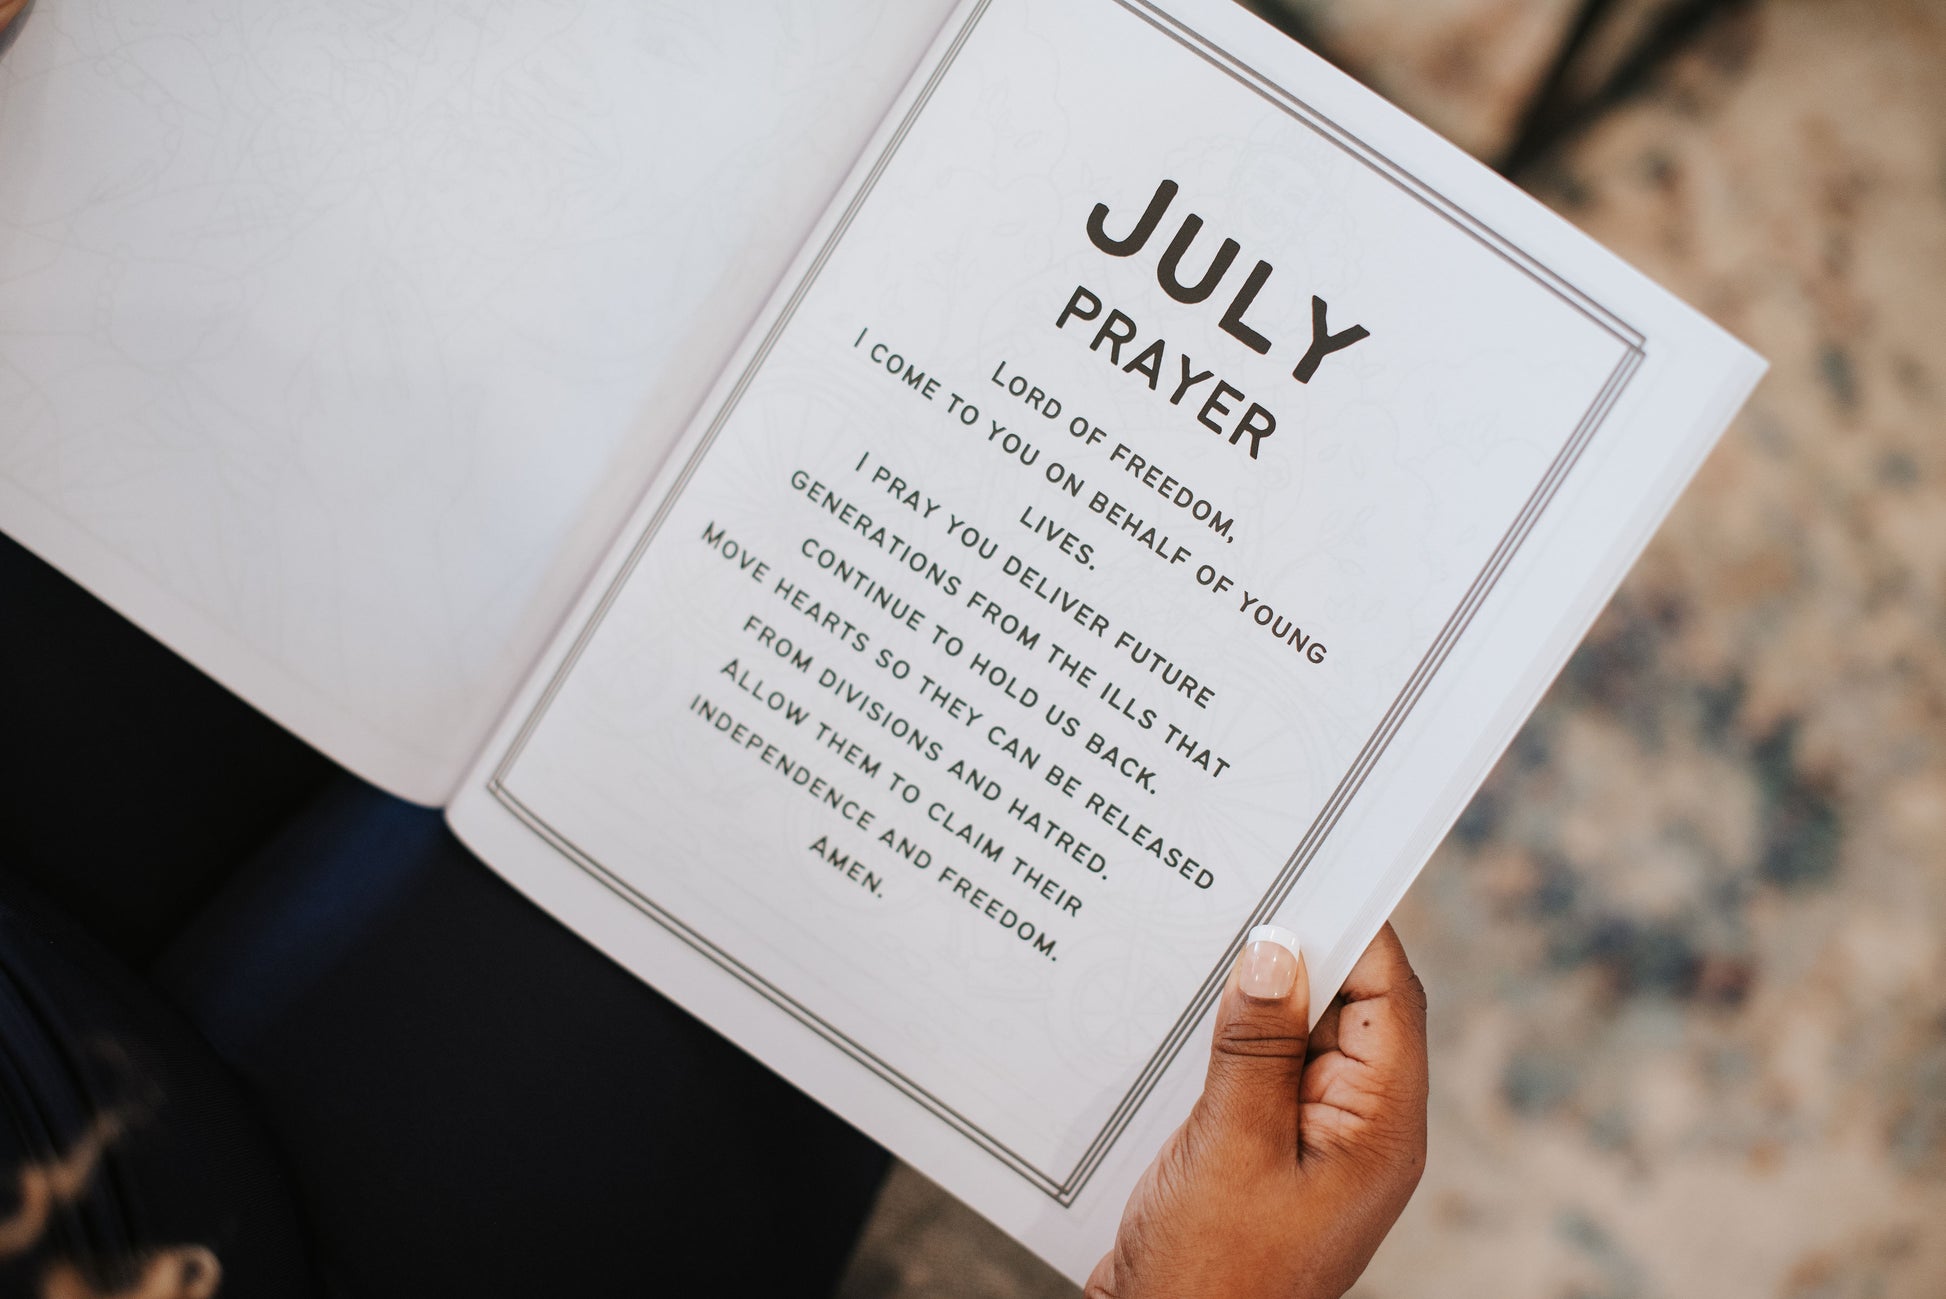 JULY
PRAYER
LORD OF FREEDOM,
I COME TO YOU ON BEHALF OF YOUNG
LIVES.
I PRAY YOU DELIVER FUTURE
GENERATIONS FROM THE ILLS THAT
CONTINUE TO HOLD US BACK.
MOVE HEARTS SO THEY CAN BE RELEASED
FROM DIVISIONS AND HATRED.
ALLOW THEM TO CLAIM THEIR
INDEPENDENCE AND FREEDOM.
AMEN.